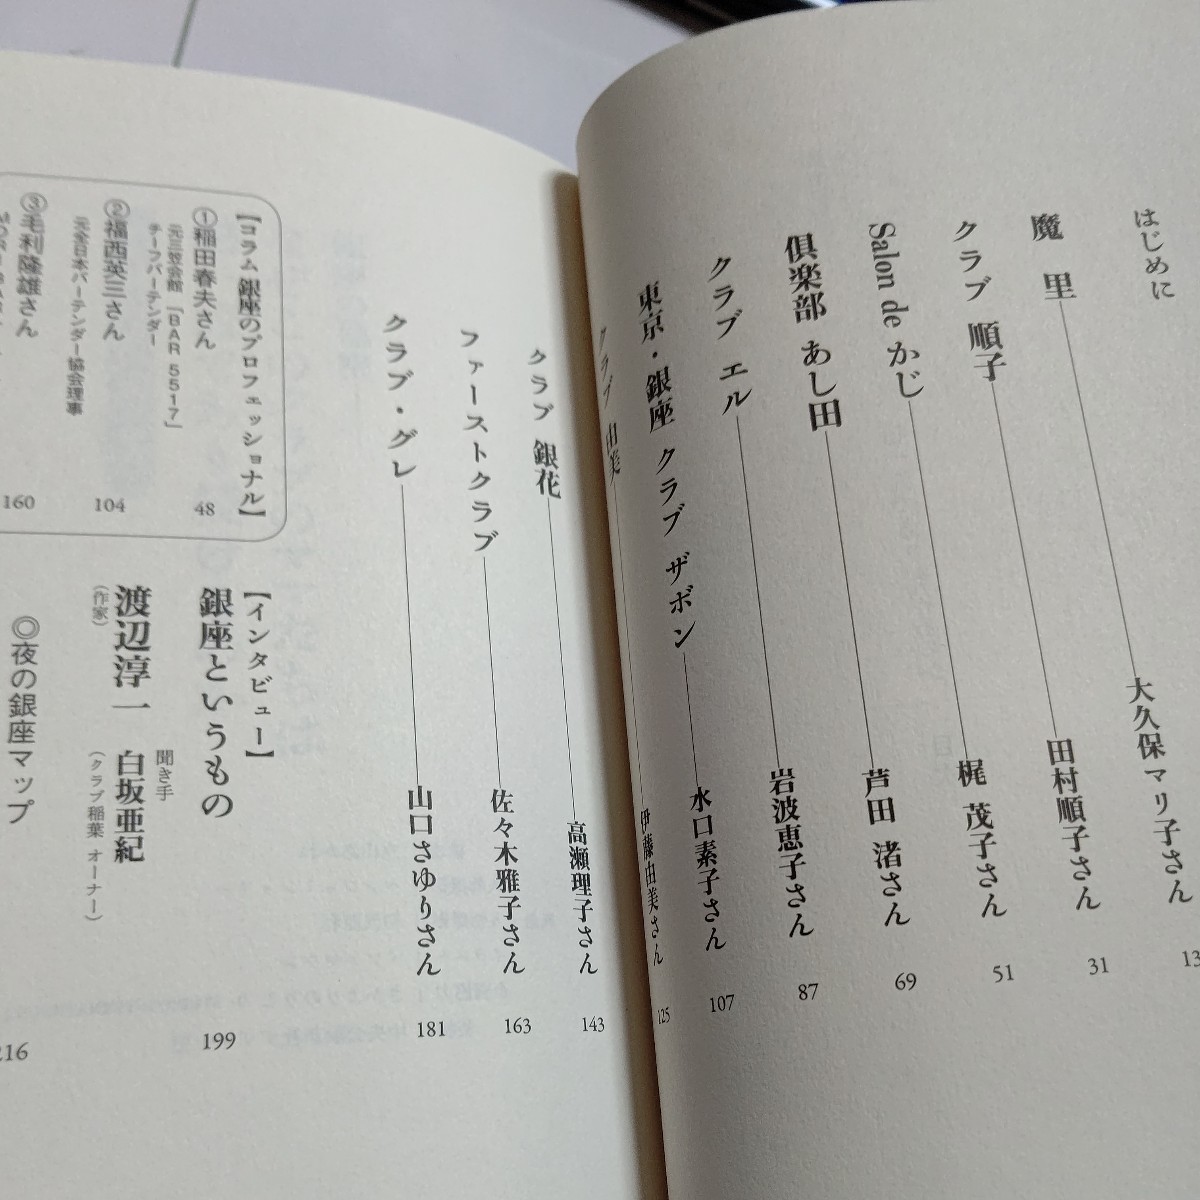 はじめに
魔里 大久保マリ子さん 13
クラブ 順子 田村順子さん 31
Salon de かじ 梶 茂子さん 51
倶楽部 あし田 芦田 渚さん 69
クラブ エル 岩波恵子さん 87
東京・銀座 クラブ ザボン 水口素子さん 107
クラブ 由美 伊藤由美さん 125
クラブ 銀花 高瀬理子さん 143
ファーストクラブ 佐々木雅子さん 163
クラブ・グレ 山口さゆりさん 181
【コラム 銀座のプロフェッショナル】
①稲田春夫さん 48
元三笠会館「BAR 5517」
チーフバーテンダー
②福西英三さん 104
元全日本バーテンダー協会理事
③毛利隆雄さん 160
【インタビュー】
銀座というもの 199
渡辺淳一
(作家)
聞き手
白坂亜紀
(クラブ稲葉 オーナー)
◎夜の銀座マップ 216